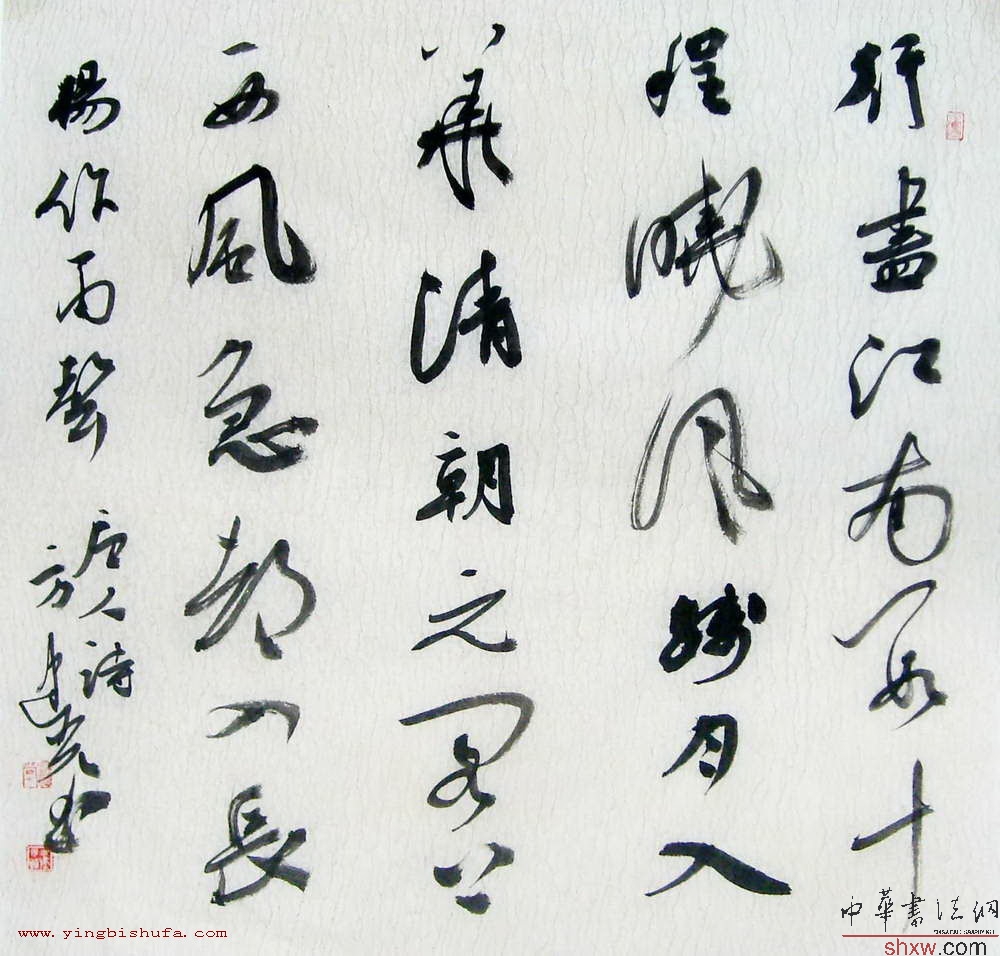 行盡江南數十
程曉風殘月入
華清朝元閣上
西風急都入長
楊作雨聲 唐人詩
方建光书
www.yingbishufa.com
中華書法網
shxw.com